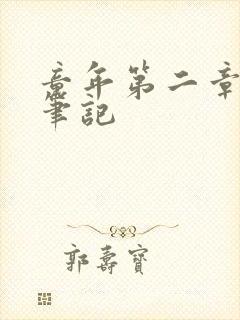 童年第二章
筆記
郭壽寶